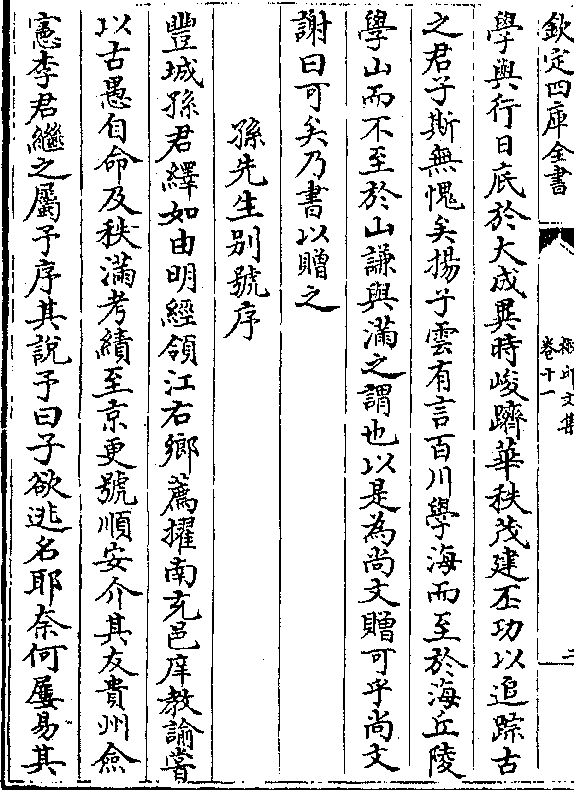 欽定四庫全書
卷十一
二
學與行日底於大成異時峻躋華秩茂建丕功以追踪古
之君子斯無愧矣揚子雲有言百川學海而至於海丘陵
學山而不至於山謙與滿之謂也以是為尚文贈可乎尚文
謝曰可矣乃書以贈之
孫先生别號序
豐城孫君繹如由明經領江右鄉薦擢南充邑庠教諭嘗
以古愚自命及秩滿考績至京更號順安介其友貴州僉
憲李君繼之屬予序其說予曰子欲逃名耶奈何屢易其